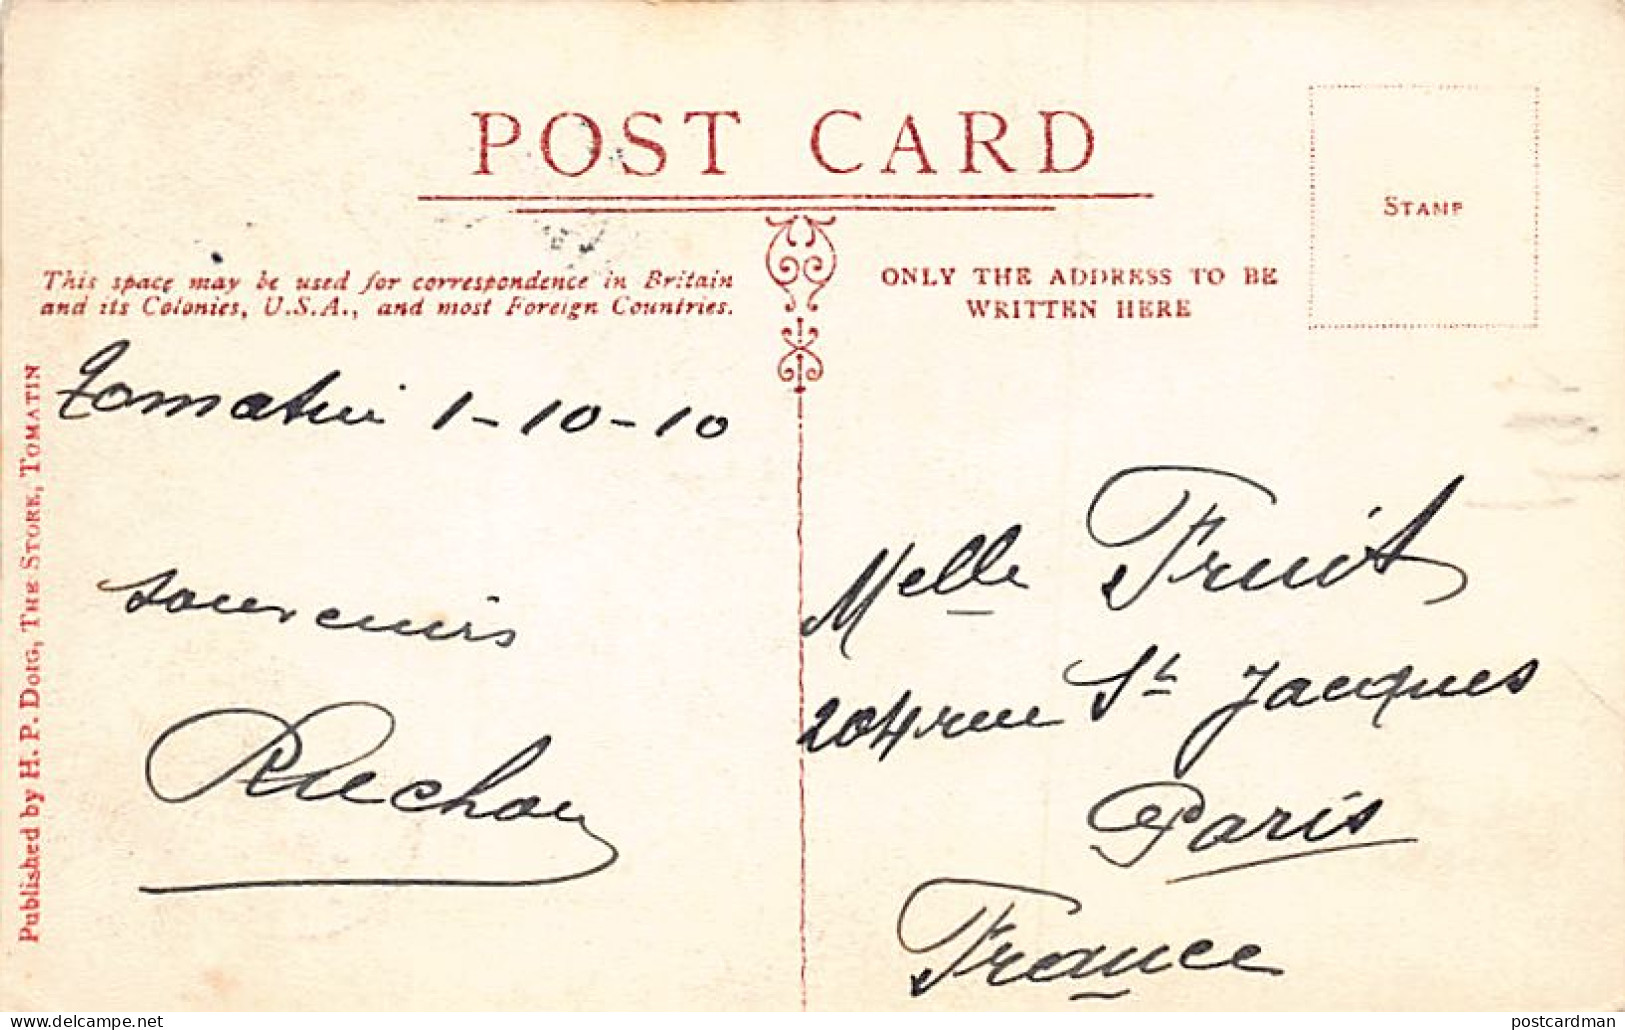 POST CARD
STAMP
This space may be used for correspondence in Britain
and its Colonies, U.S.A., and most Foreign Countries.
ONLY THE ADDRESS TO BE
WRITTEN HERE
Published by H. P. Doig, The Store, Tomatin
Tomatin 1-10-10
souvenirs
Melle Fruit
204 rue St Jacques
Paris
France
delcampe.net
postcardman